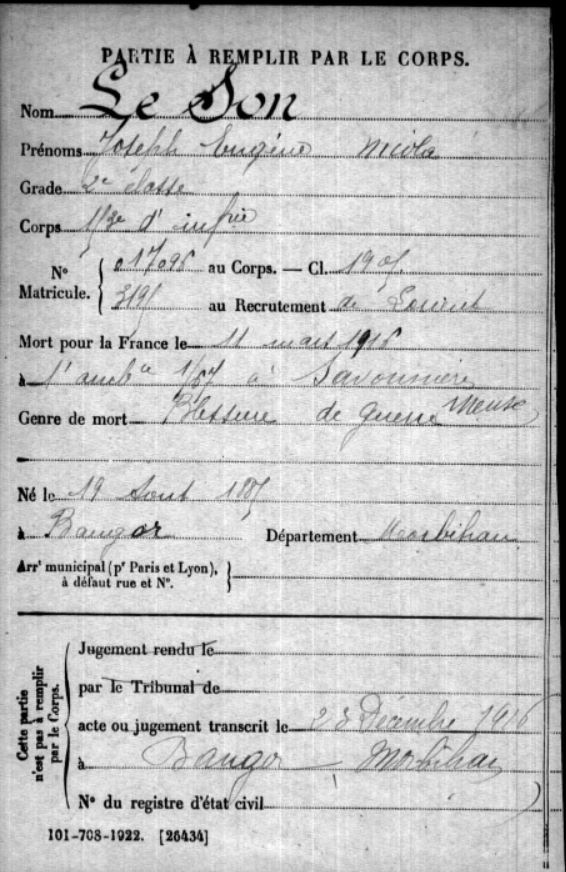 PARTIE À REMPLIR PAR LE CORPS.
Nom Le Son
Prénoms Joseph Eugène Nicolas
Grade 2e classe
Corps 113e d' infrie
No Matricule. { 017095 au Corps. — Cl. 1905
319 au Recrutement de Lorient
Mort pour la France le 11 mars 1916
à l'ambce 1/57 à Savonnière
Genre de mort Blessure de guerre Meuse
Né le 19 Aout 188
à Bangor Département Morbihan
Arrt municipal (pr Paris et Lyon), à défaut rue et No. }
Cette partie n'est pas à remplir par le Corps.
Jugement rendu le
par le Tribunal de
acte ou jugement transcrit le 23 Décembre 1916
à Bangor — Morbihan
No du registre d'état civil
101-708-1922. [26434]